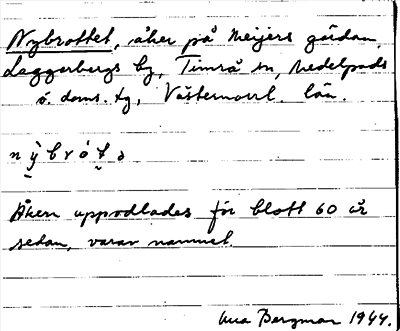 Nybrottet, åker på Meijers gårdan,
Laggerbergs by, Timrå sn, Medelpads
ö. doms. tg, Västernorrl. län.
nỳbrótə
Åkern uppodlades för blott 60 år
sedan, varav namnet.
Bergman 1944.